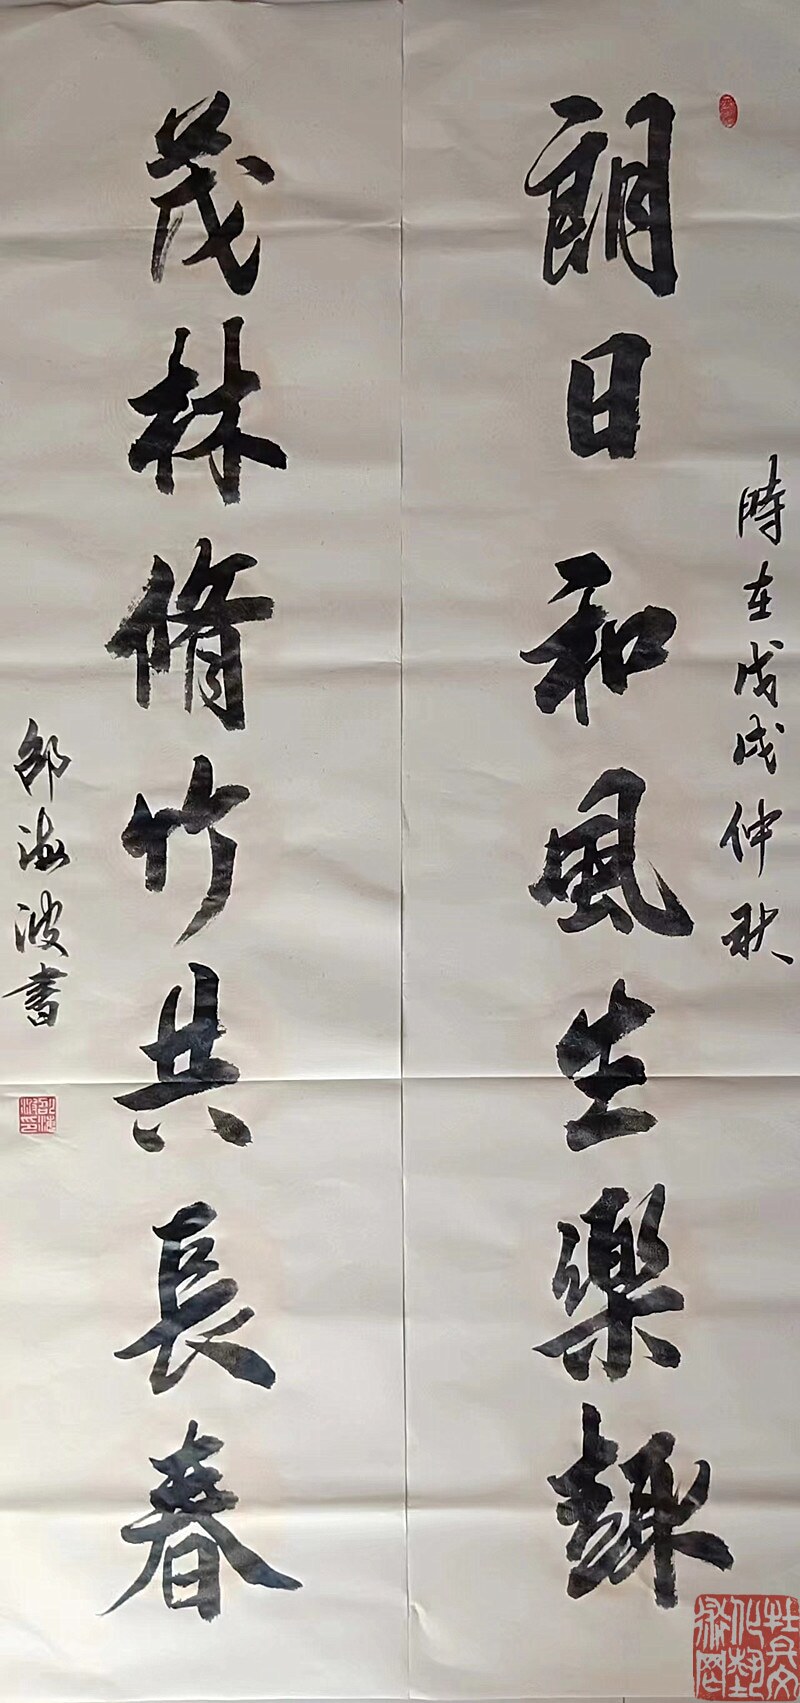 時在戊戌仲秋
朗日和風生樂趣
茂林脩竹共長春
邵海波書